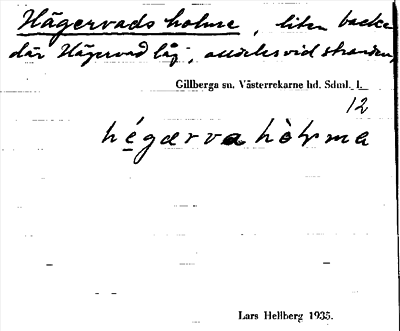 Hägervads holme, liten backe
där Hägervad låg, alldeles vid stranden,
Gillberga sn. Västerrekarne hd. Sdml. 1.
12
hégærva hòlma
Lars Hellberg 1935.